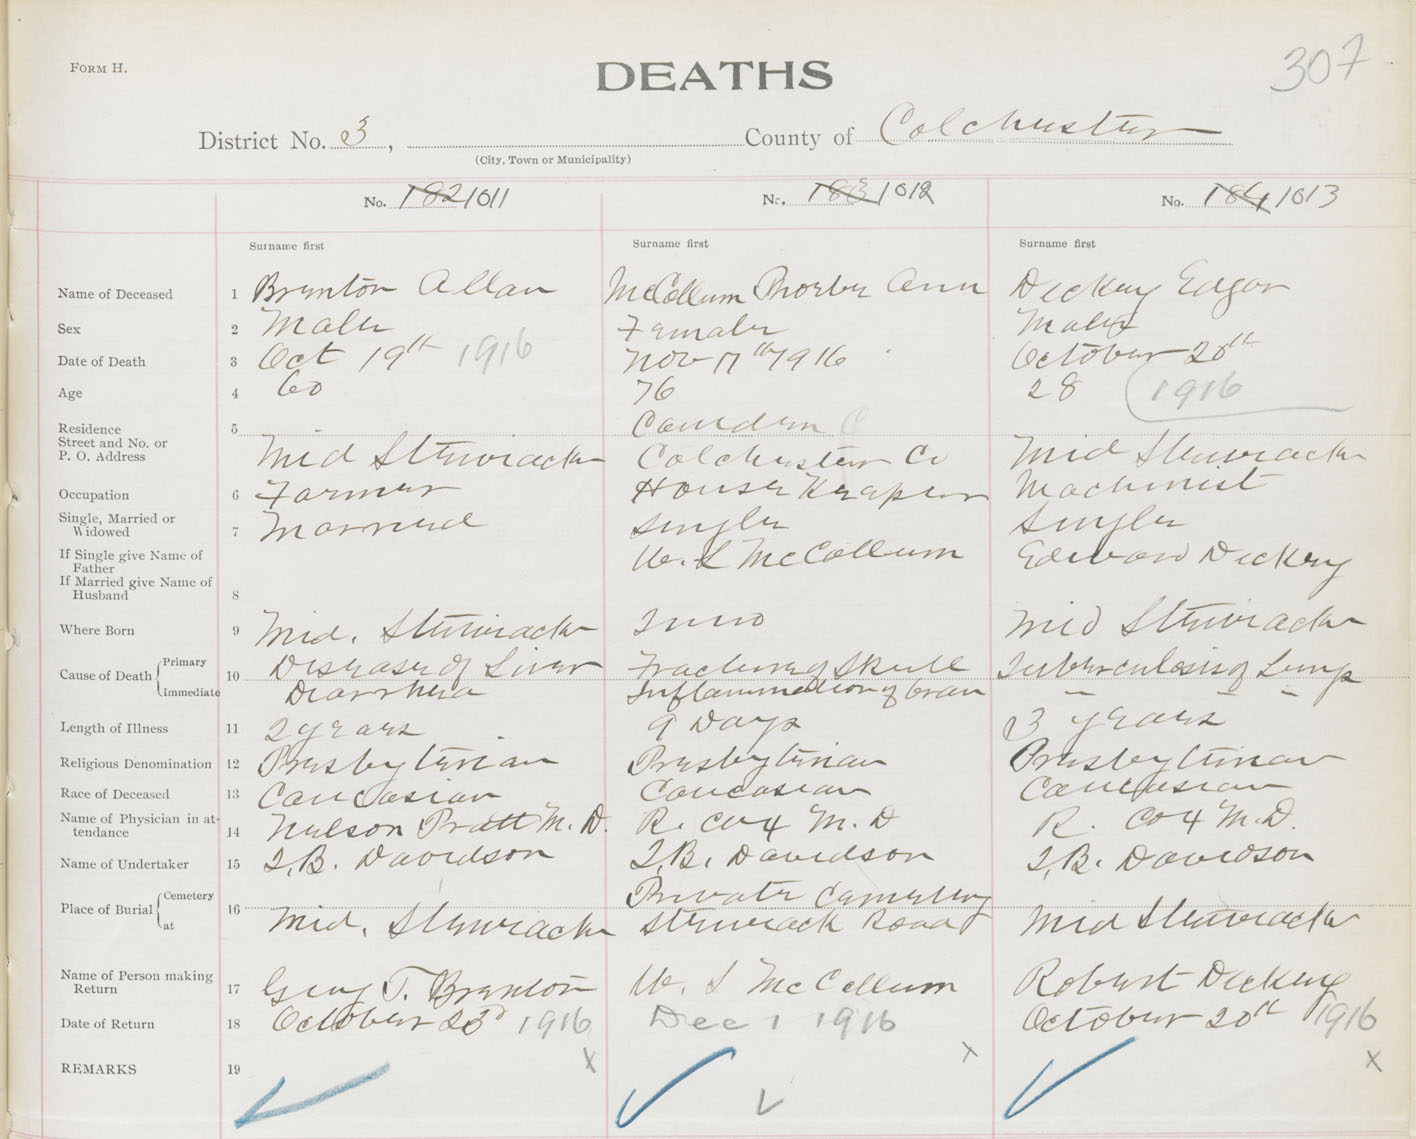 307
FORM H.
DEATHS
District No. 3, County of Colchester
(City, Town or Municipality)
No. 182 1011 No. 183 1012 No. 184 1013
Surname first Surname first Surname first
Name of Deceased 1 Brenton Allan McCollum Phoebe Ann Dickey Edgar
Sex 2 Male Female Male
Date of Death 3 Oct 19th 1916 Nov 17th 1916 October 20th
Age 4 60 76 28 1916
Residence 5 Camden
Street and No. or
P. O. Address Mid Stewiacke Colchester Co Mid Stewiacke
Occupation 6 Farmer House Keaper Machinist
Single, Married or
Widowed 7 Married Single Single
If Single give Name of
Father W. S McCollum Edward Dickey
If Married give Name of
Husband 8
Where Born 9 Mid. Stewiacke Mid Stewiacke
Cause of Death Primary 10 Disease of Liver Fracture of Skull Tuberculosis of Lungs
Immediate Diarrhea Inflammation of brain
Length of Illness 11 2 years 9 Days 3 years
Religious Denomination 12 Presbyterian Presbyterian Presbyterian
Race of Deceased 13 Caucasian Caucasian Caucasian
Name of Physician in at-
tendance 14 Nelson Pratt M. D. R. Cox M. D R. Cox M. D.
Name of Undertaker 15 I. B. Davidson I. B. Davidson I. B. Davidson
Place of Burial Cemetery 16 Private Cemetery
at Mid. Stewiacke Stewiack Road Mid Stewiacke
Name of Person making
Return 17 T. Brenton W. S McCollum Robert Dickey
Date of Return 18 October 23d 1916 Dec 1 1916 October 20th 1916
REMARKS 19 x x x